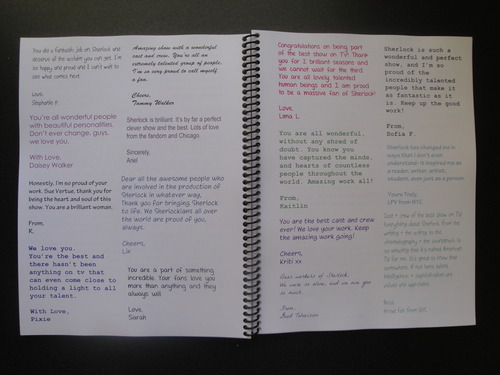 You do a fantastic job on Sherlock and
deserve all the acclaim you can get. I'm
so happy and proud and I can't wait to
see what comes next.
Love,
Stephanie P.
You're all wonderful people
with beautiful personalities.
Don't ever change, guys,
we love you.
With Love,
Daisey Walker
Honestly, I'm so proud of your
work. Sue Vertue, thank you for
being the heart and soul of this
show. You are a brilliant woman.
From,
K.
We love you.
You're the best and
there hasn't been
anything on tv that
can even come close to
holding a light to all
your talent.
With Love,
Pixie
Amazing show with a wonderful
cast and crew. You're all an
extremely talented group of people.
I'm so very proud to call myself
a fan.
Cheers,
Tammy Walker
Sherlock is brilliant. It's by far a perfect
clever show and the best. Lots of love
from the fandom and Chicago.
Sincerely,
Ariel
Dear all the awesome people who
are involved in the production of
Sherlock in whatever way,
Thank you for bringing Sherlock
to life. We Sherlockians all over
the world are proud of you,
always.
Cheers,
Liv
You are a part of something
incredible. Your fans love you
more than anything and they
always will.
Love,
Sarah
Congratulations on being part
of the best show on TV! Thank
you for 2 brilliant seasons and
we cannot wait for the third.
You are all lovely, talented
human beings and I am proud
to be a massive fan of Sherlock!
Love,
Lima L.
You are all wonderful,
without any shred of
doubt. You know you
have captured the minds,
and hearts of countless
people throughout the
world. Amazing work all!
From,
Kaitlin
You are the best cast and crew
ever! We love your work. Keep
the amazing work going!
Cheers,
Kriti xx
Dear workers of Sherlock,
We were so alone, and we owe you
so much.
From,
Sherlock is such a
wonderful and perfect
show, and I'm so
proud of the
incredibly talented
people that make it
as fantastic as it
is. Keep up the good
work!
From,
Sofia F.
Sherlock has changed me in
ways that I don't even
understand. It inspired me as
a reader, writer, artist,
student, even just as a person.
Yours Truly,
LPV from NYC